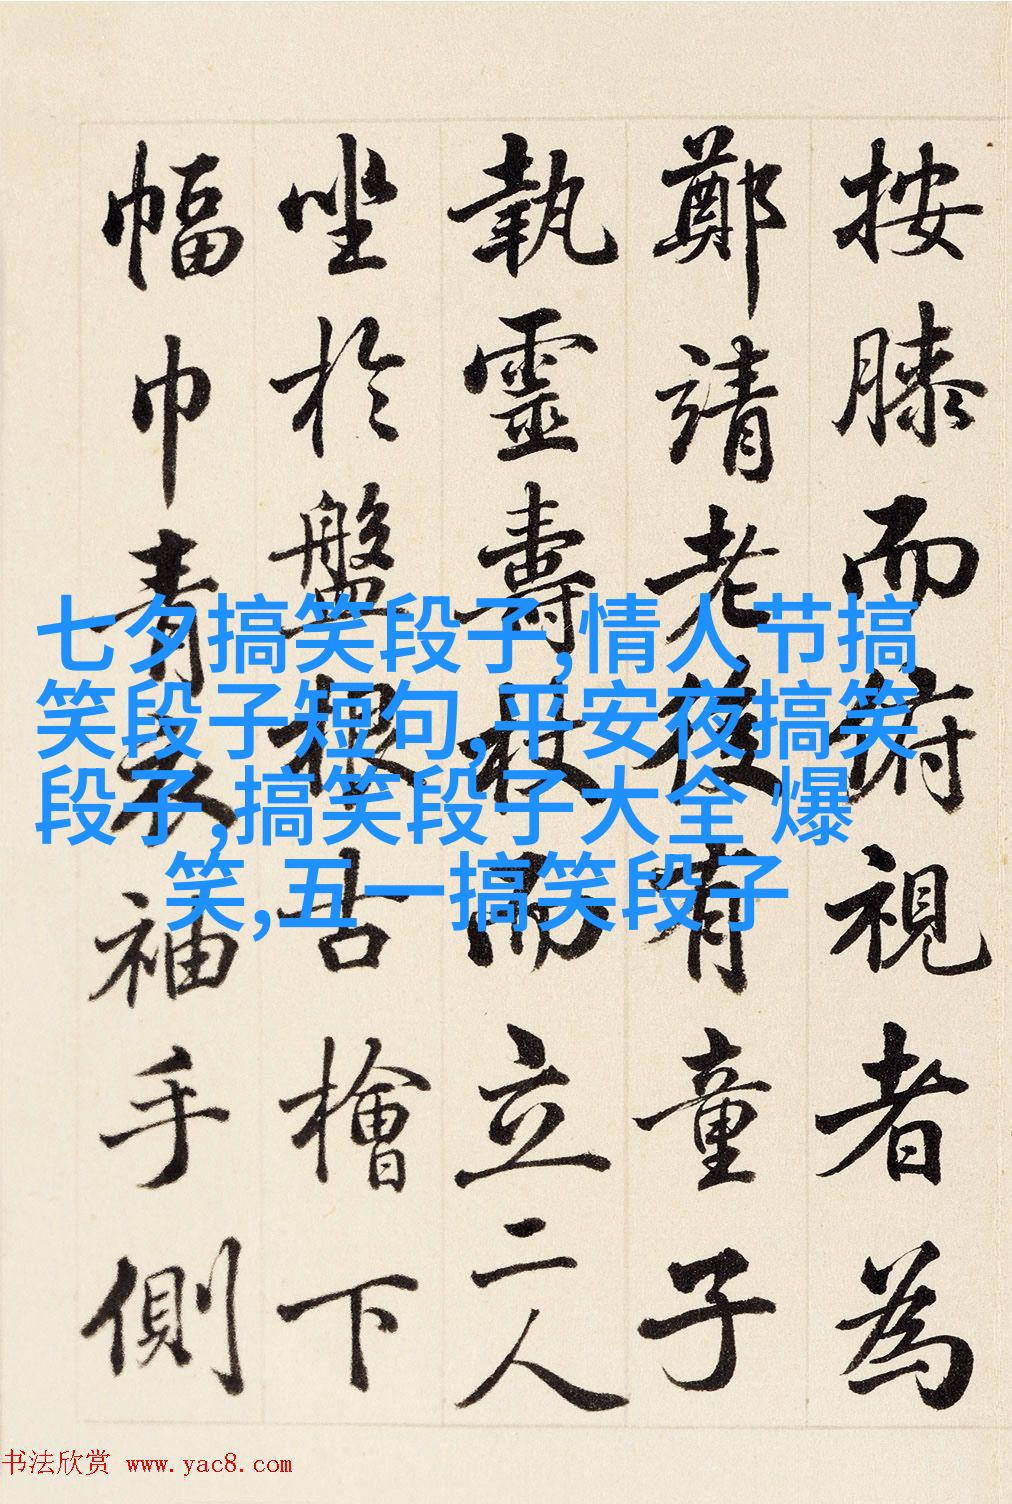 按膝而俯視者為
鄭靖老後有童子
執靈壽杖而立二人
坐於盤根古檜下
幅巾青衣袖手側
七夕搞笑段子,情人节搞
笑段子短句,平安夜搞笑
段子,搞笑段子大全 爆
笑,五一搞笑段子
书法欣赏 www.yac8.com